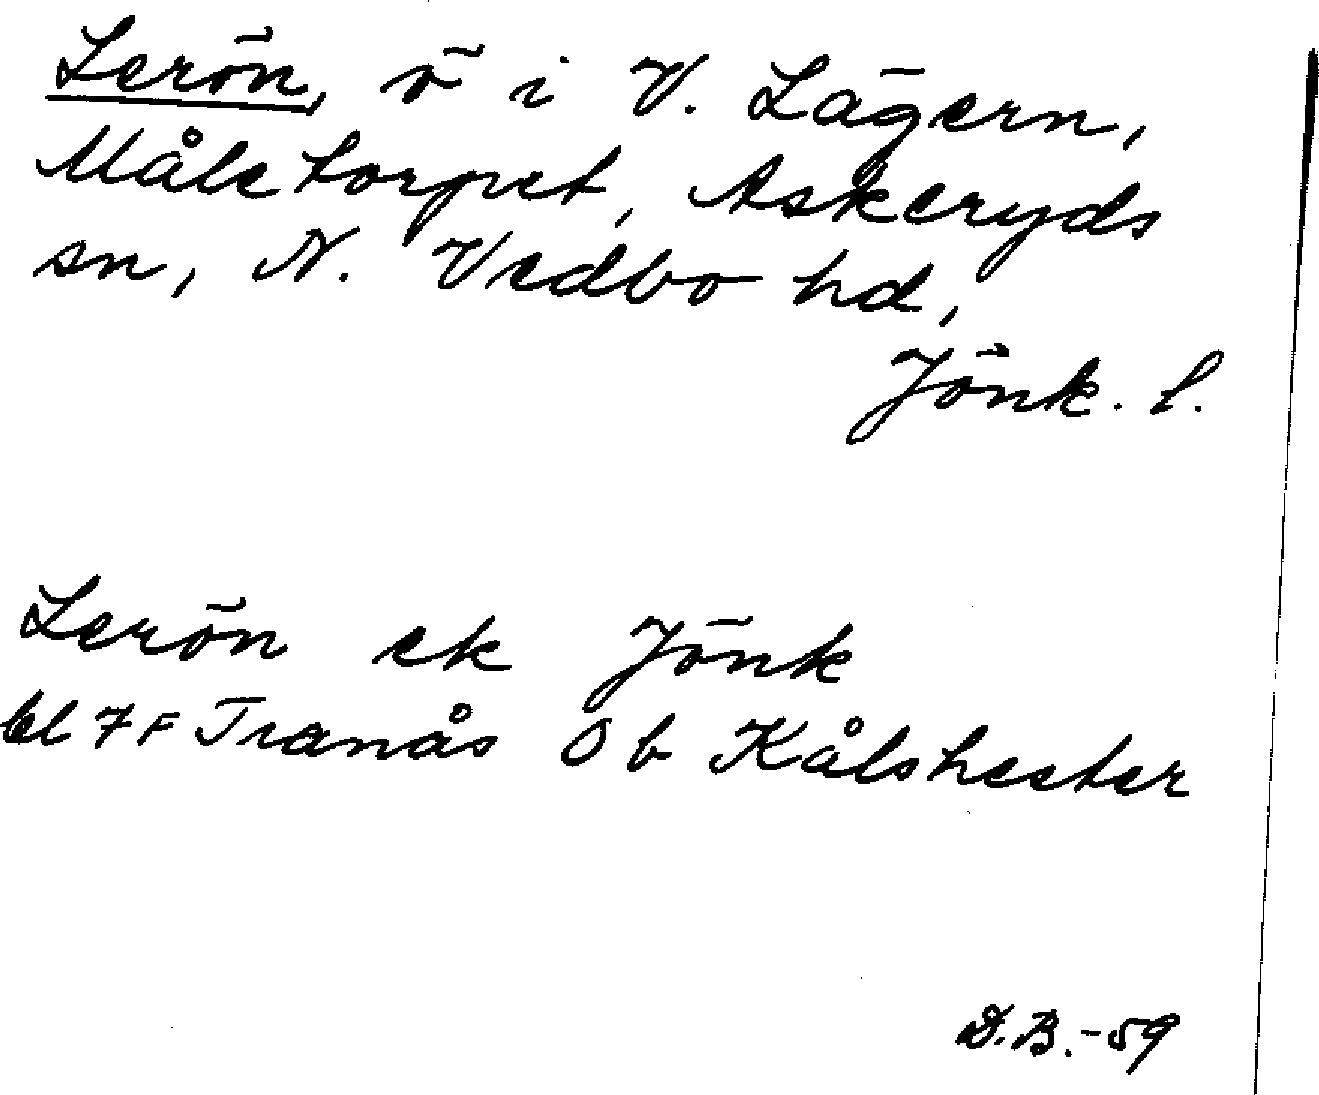 Lerön, ö i V. Lägern,
Måletorpet, Askeryds
sn, N. Vedbo hd,
Jönk. l.
Lerön ek Jönk
bl 7F Tranås Ob Kålshester
D.B.-59